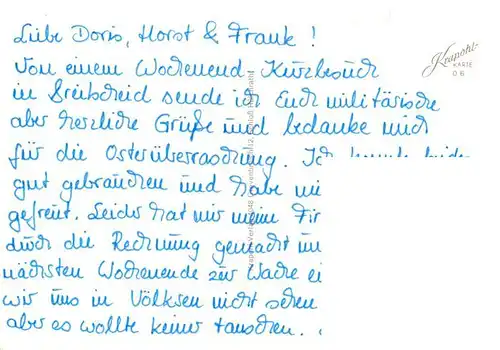 Liebe Doris, Horst & Frank!
Von einem Wochenend-Kurzbesuch
in Breitscheid sende ich Euch militärische
aber herzliche Grüße und bedanke mich
für die Osterüberraschung. Ich
gut gebrauchen und habe mi
gefreut. Leider hat mir mein
durch die Rechnung gemacht un
nächsten Wochenende zur Wache ei
wir uns in Völksen nicht sehen
aber es wollte keiner tauschen.
Krapohl
KARTE